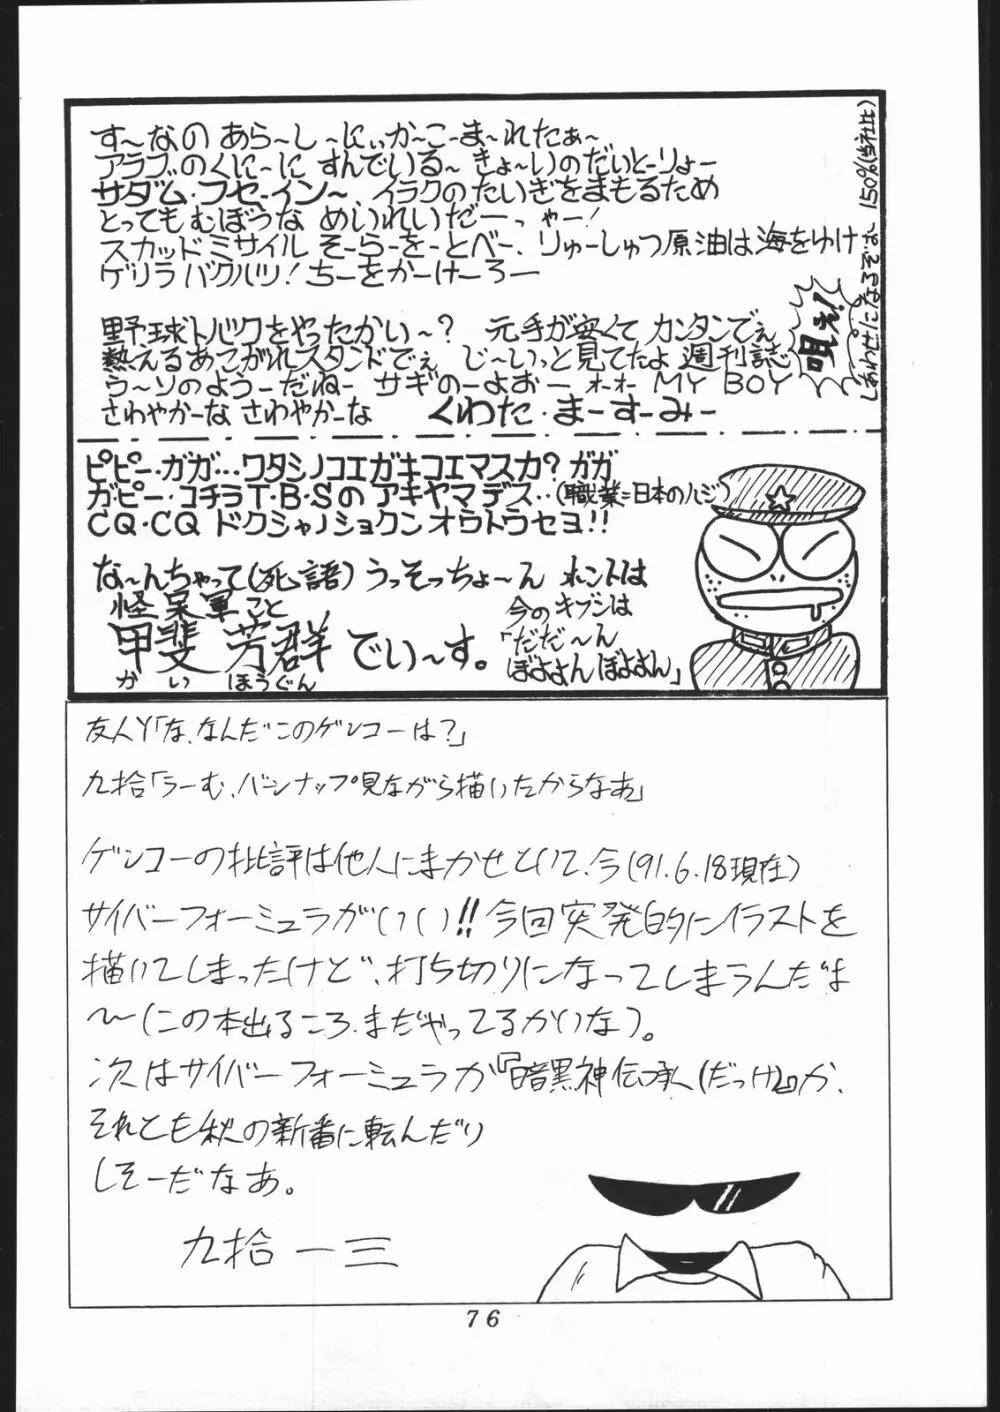 す〜なの あら〜し〜にぃか〜こーま〜れたぁ〜
アラブのくに〜に すんでいる〜 きょ〜いのだいとーりょー
サダム・フセーイン〜、イラクのたいぎをまもるため
とってもむぼうな めいれいだーっ ゃー!
スカッドミサイル そーらーをーとべー、りゅーしゅつ原油は海をゆけ
ゲリラバクハツ! ちーをかーけーろー
野球トバクをやったかい〜? 元手が安くて カンタンでぇ
熱えるあこがれスタンドでぇ じ〜いっと見てたよ 週刊誌
う〜ソのようーだねー サギのーよおー ォーォー MY BOY
さわやかーな さわやかーな くわた・まーすーみー
唄え!
しあわせになるぞよ、150%(当社比)
ピピー・ガガ…ワタシノコエガキコエマスカ? ガガ
ガピー・コチラT・B・Sの アキヤマデス‥(職業=日本のハジ)
CQ・CQ ドクシャノショクン オウトウセヨ!!
な〜んちゃって(死語) うっそっちょ〜ん ホントは
怪呆軍こと
甲斐 芳群でぃ〜す。
かい ほうぐん
今のキブンは
「だだ〜ん
ぼよよん ぼよよん」
友人Y「な、なんだこのゲンコーは?」
九拾「うーむ、バーンナップ見ながら描いたからなあ」
ゲンコーの批評は他人にまかせといて、今(91.6.18現在)
サイバーフォーミュラがいい!! 今回突発的にイラストを
描いてしまったけど、打ち切りになってしまうんだよ
〜(この本出るころ、まだやってるかいな)。
次はサイバーフォーミュラか『暗黒神伝承(だっけ)』か、
それとも秋の新番に転んだり
しそーだなあ。
九拾 一三
76